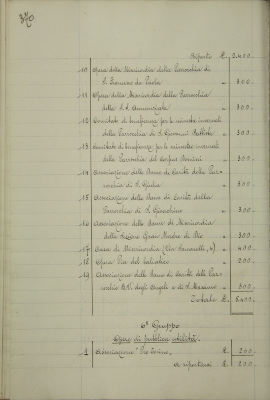 370
Riporto £. 2.400.
10 Opera della Misericordia della Parrocchia di
S. Francesco da Paola " 300.
11 Opera della Misericordia della Parrocchia
della S.S. Annunziata " 300.
12 Comitato di beneficenza per le minestre invernali
della Parrocchia di S. Giovanni " 300.
13 Comitato di beneficenza per le minestre invernali
della Parrocchia del Corpus Domini " 300.
14 Associazione delle Dame di Carità della Par-
rocchia di S. Giulia " 300.
15 Associazione delle Dame di Carità della
Parrocchia di S. Gioachino " 300.
16 Associazione delle Dame di Misericordia
della Gran Madre di Dio " 300.
17 Casa di Misericordia (Via , 4) " 400.
18 Opera Pia del " 200.
19 Associazione delle Dame di Carità delle Par-
rocchie N.S. degli Angeli e di S. Massimo " 300.
Totale £. 6.400.
6° Gruppo
Opere di pubblica utilità
1 Associazione "Pro Torino" £. 200.
A riportarsi £. 200.